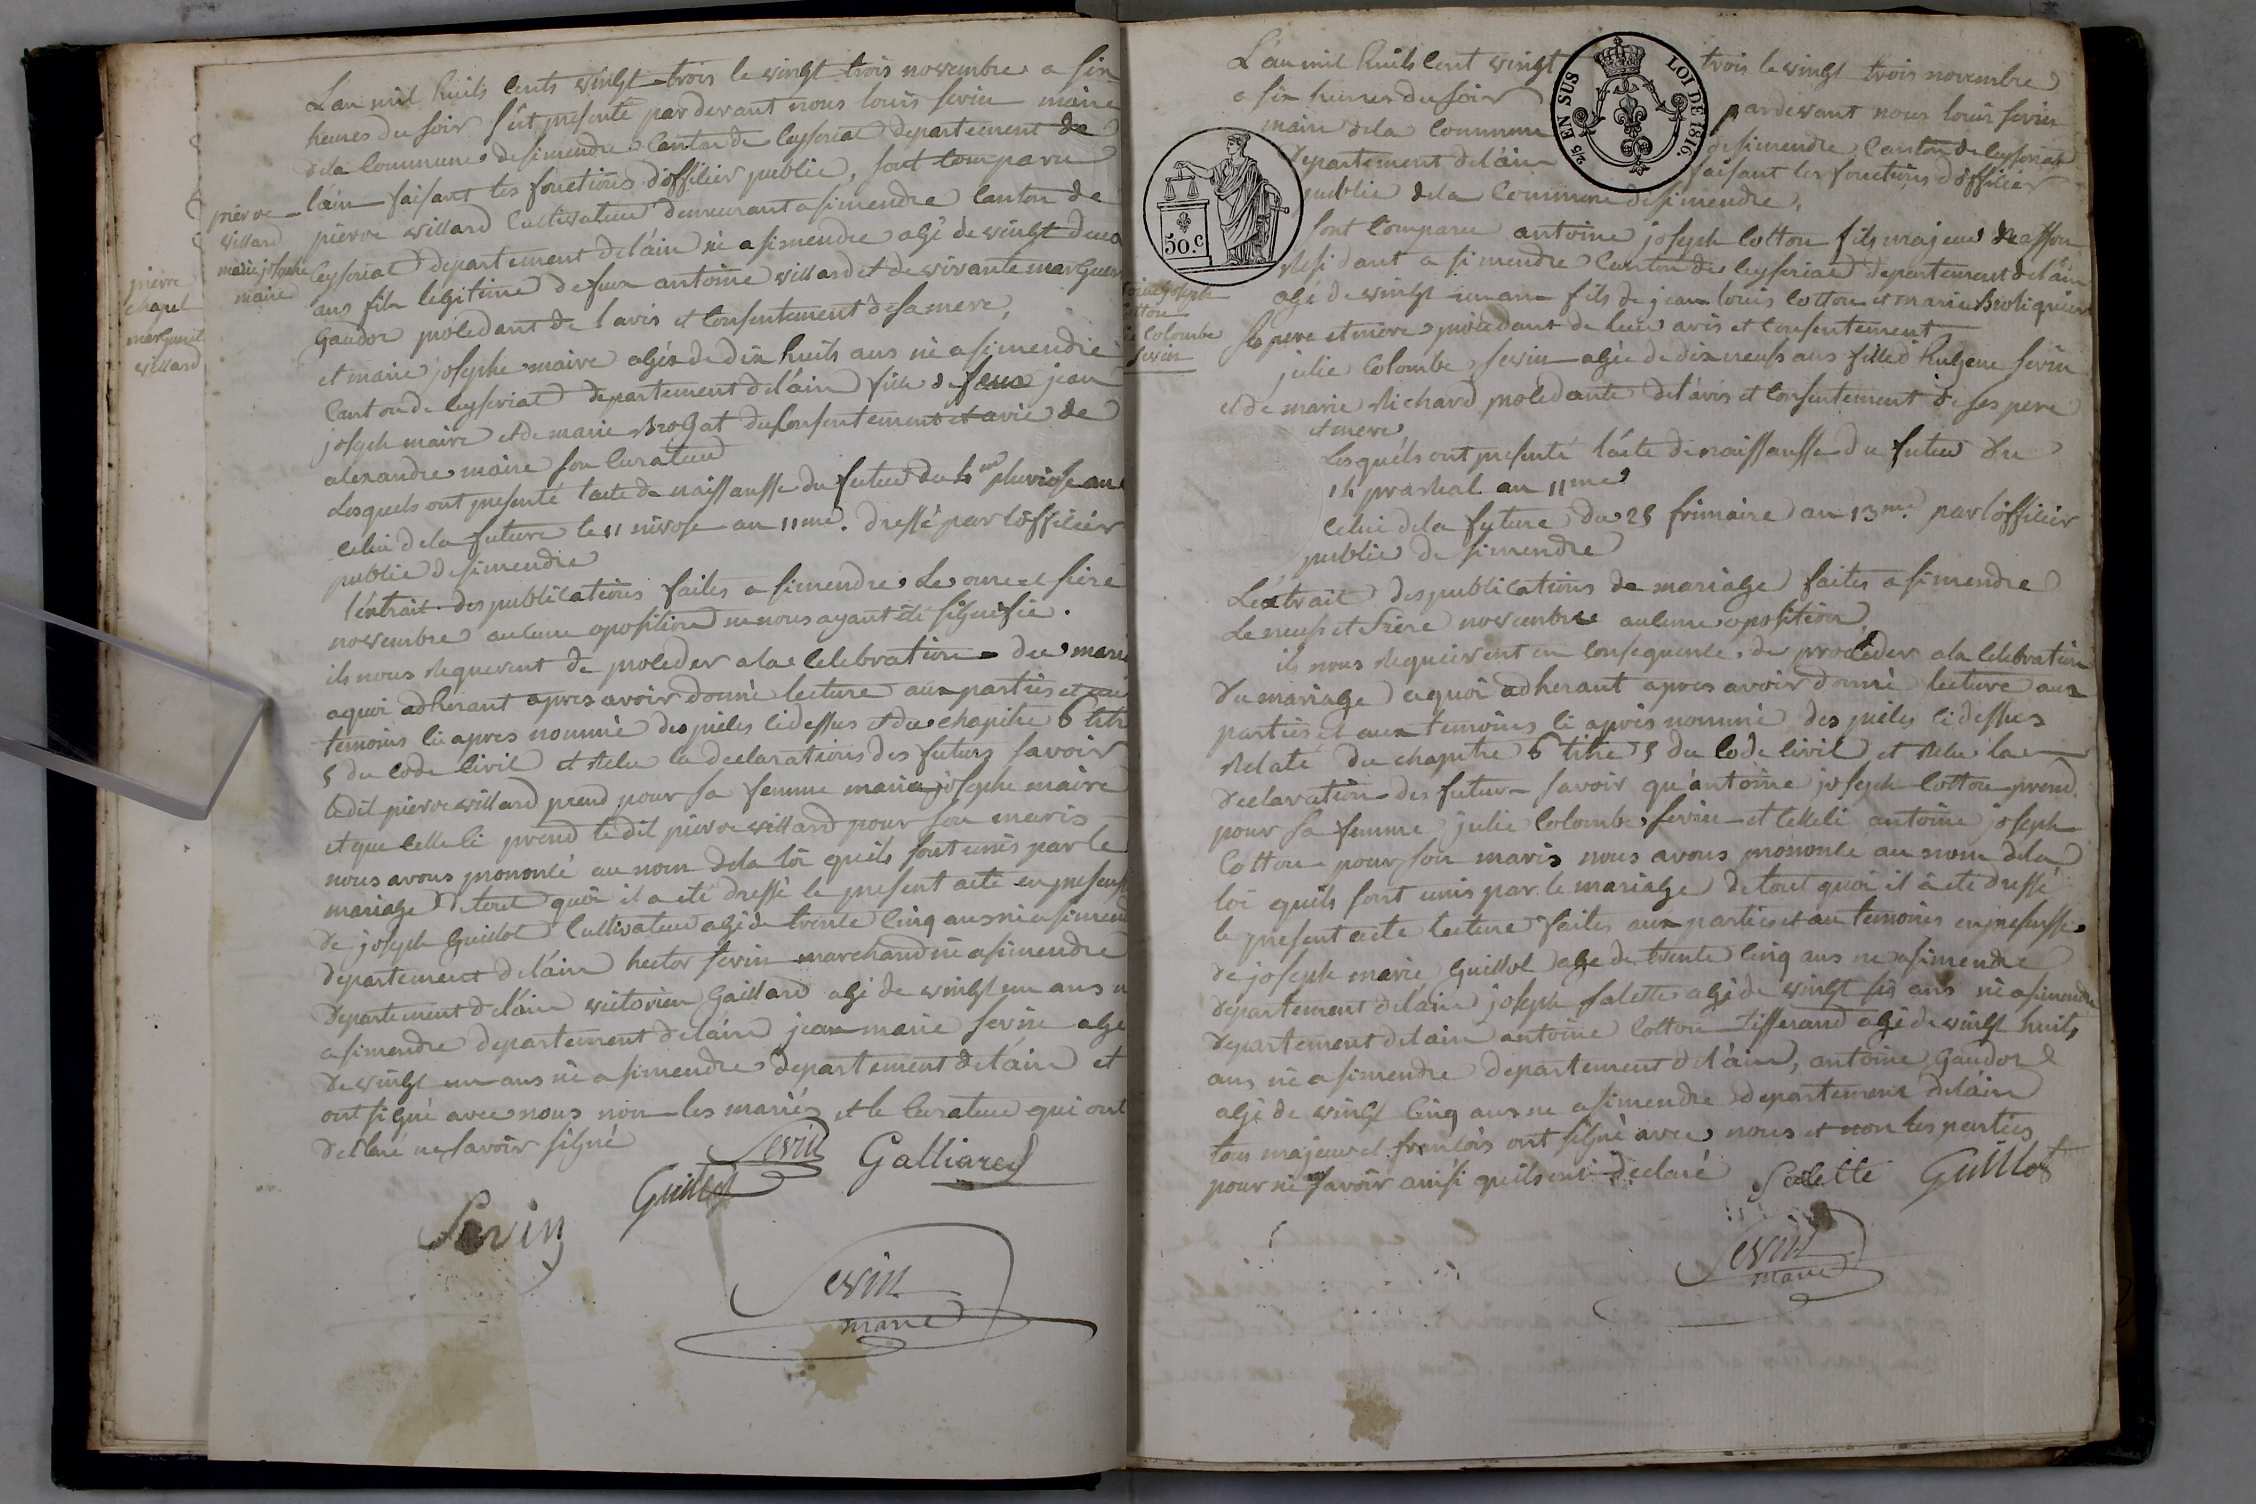 pierre
chapel
marguerit
villard
pierre
villard
marie josephe
maire
L'an mil huit cents vingt trois le vingt trois novembre a six
heures du soir s'est presenté pardevant nous louis sevin maire
de la Commune de simendre Canton de Ceyseriat departement de
l'ain faisant les fonctions d'officier public, sont comparu
pierre villard Cultivateur demeurant a simendre Canton de
Ceyseriat departement de l'ain né a simendre agé de vingt deux
ans fils legitime de feux antoine villard et de vivante marGuer
Gaudor procedant de l'avis et Consentement de sa mere,
et marie josephe maire agée de dix huits ans né a simendre
Canton de Ceyseriat departement de l'ain fille de feux jean
joseph maire et de marie BroGat du Consentement et avis de
alexandre maire son Curateur
Lesquels ont presenté l'acte de naissansse du futeur du 4me pluviose an
celui de la future le 11 nivose an 11me. dressé par l'officier
public de simendre
l'extrait des publications faites a simendre Le onze et sieze
novembre aucune oposition ne nous ayant été signifié.
ils nous requerent de proceder a la Celebration du mari
aquoi adherant apres avoir donné lecture aux parties et au
temoins ci apres nommé des pieces ci dessus et du chapitre 6 titr
5 du Code Civil et relu la declarations des futurs savoir
ledit pierre villard prend pour sa femme marie josephe maire
et que celle ci prend ledit pierre villard pour son maris
nous avons prononcé au nom de la loi quils sont unis par le
mariage de tout quoi il a été dressé le present acte en presens
de joseph Guillot Cultivateur agé de trente Cinq ans né a simend
departement de l'ain hector sevin marchand né a simendre
departement de l'ain victorien Gaillard agé de vingt un ans n
a simendre departement de l'ain jean marie sevin agé
de vingt un ans né a simendre departement de l'ain et
ont signé avec nous non les mariés et le Curateur qui ont
declaré ne savoir signé
Sevin Galliared
Guillot
Sevin
Sevin
maire
50.C
2/5 EN SUS LOI DE 1816.
L'an mil huits Cent vingt trois le vingt trois novembre
a six heures du soir pardevant nous louis sevin
maire de la Commune de simendre Canton de Ceyseriat
departement de l'ain faisant les fonctions d'officier
public de la Commune de simendre,
joseph
Cotton
Colombe
sevin
sont Comparu antoine joseph Cotton fils majeur
residant a simendre Canton de Ceyseriat departement de l'ain
agé de vingt un ans fils de jean louis Cotton et marie
se pere et mere procedant de leur avis et Consentement
julie Colombe sevin agée de dix neufs ans fille d'hugene sevin
et de marie Richard procedante de l'avis et Consentement de ses pere
et mere
Lesquels ont presenté l'acte de naissansse du futeur du
14 prasreal an 11me
Celui de la future du 25 frimaire an 13me. par l'officier
public de simendre
L'extrait des publications de mariage faites a simendre
Le neufs et sieze novembre aucune oposition,
ils nous requierent en Consequence de proceder a la Celebration
du mariage aquoi adherant apres avoir donné lecture aux
parties et aux temoins ci apres nommé des pieces ci dessus
relaté du chapitre 6 titre 5 du Code Civil et relu la
declaration des futur savoir qu'antoine joseph Cotton prend
pour sa femme julie Colombe sevin et celle ci antoine joseph
Cotton pour son maris nous avons prononcé au nom de la
loi quils sont unis par le mariage de tout quoi il a été dressé
le present acte lecture faites aux parties et au temoins en presensse
de joseph marie Guillot age de trente Cinq ans né a simendre
departement de l'ain joseph salette agé de vingt six ans né a simendre
departement de l'ain antoine Cotton tisserand agé de vingt huits
ans né a simendre departement de l'ain, antoine Gaudor
agé de vingt Cinq ans ne a simendre departement de l'ain
tous majeur et francois ont signé avec nous et non les parties
pour ne savoir ainsi quils ont declaré Salette Guillot
Sevin
maire